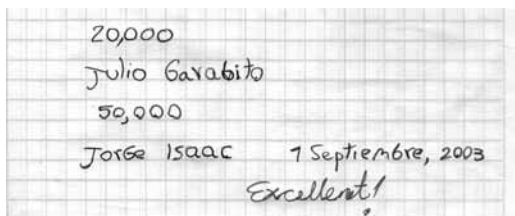 20,000
Julio Garabito
50,000
Jorge Isaac 1 Septiembre, 2003
Excellent!